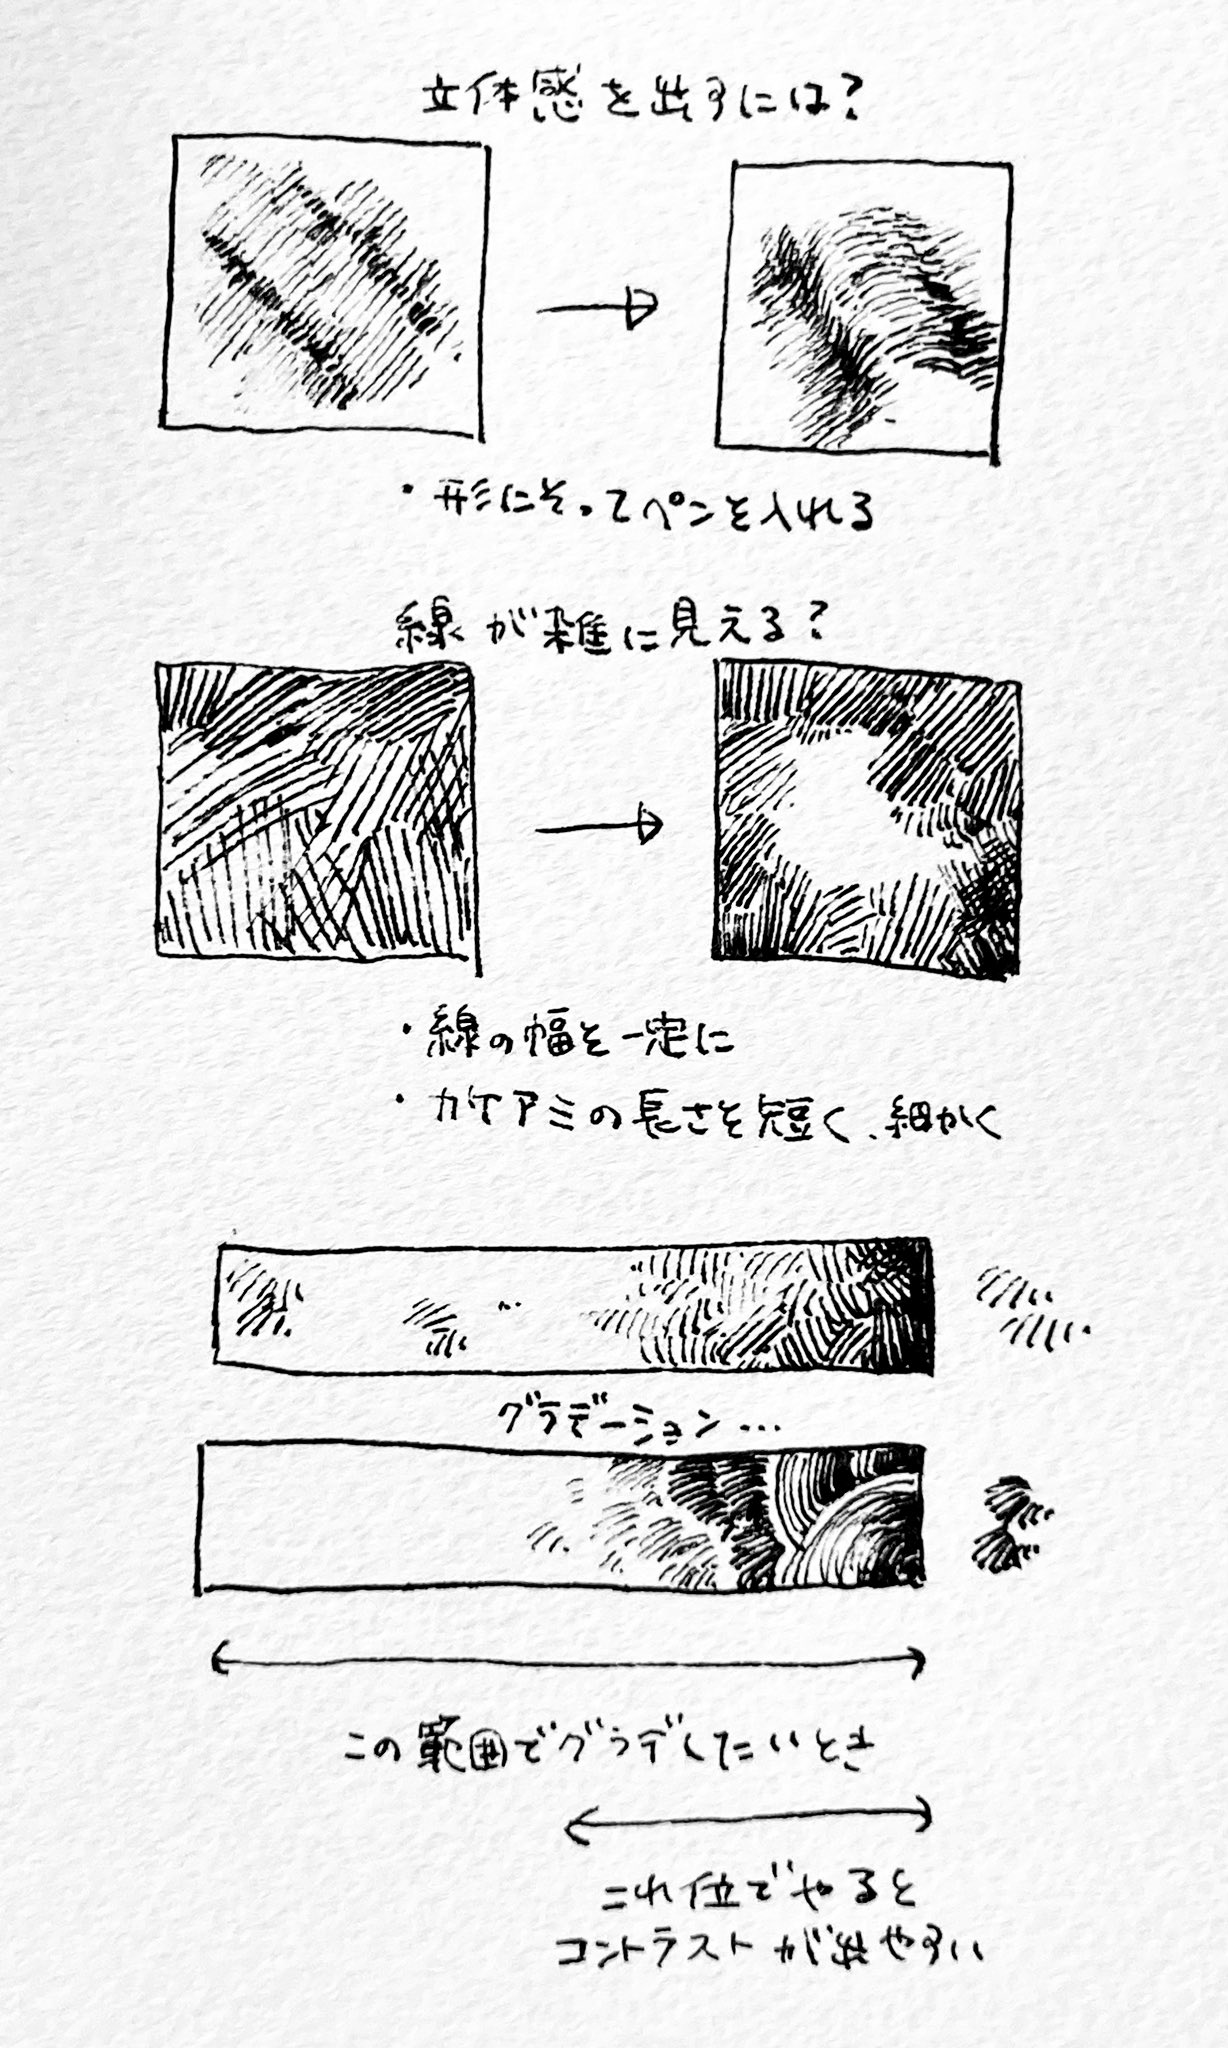 立体感を出すには?
・形にそってペンを入れる
線が雑に見える?
・線の幅を一定に
・カケアミの長さを短く、細かく
グラデーション…
この範囲でグラデしたいとき
これ位でやると
コントラストが出やすい